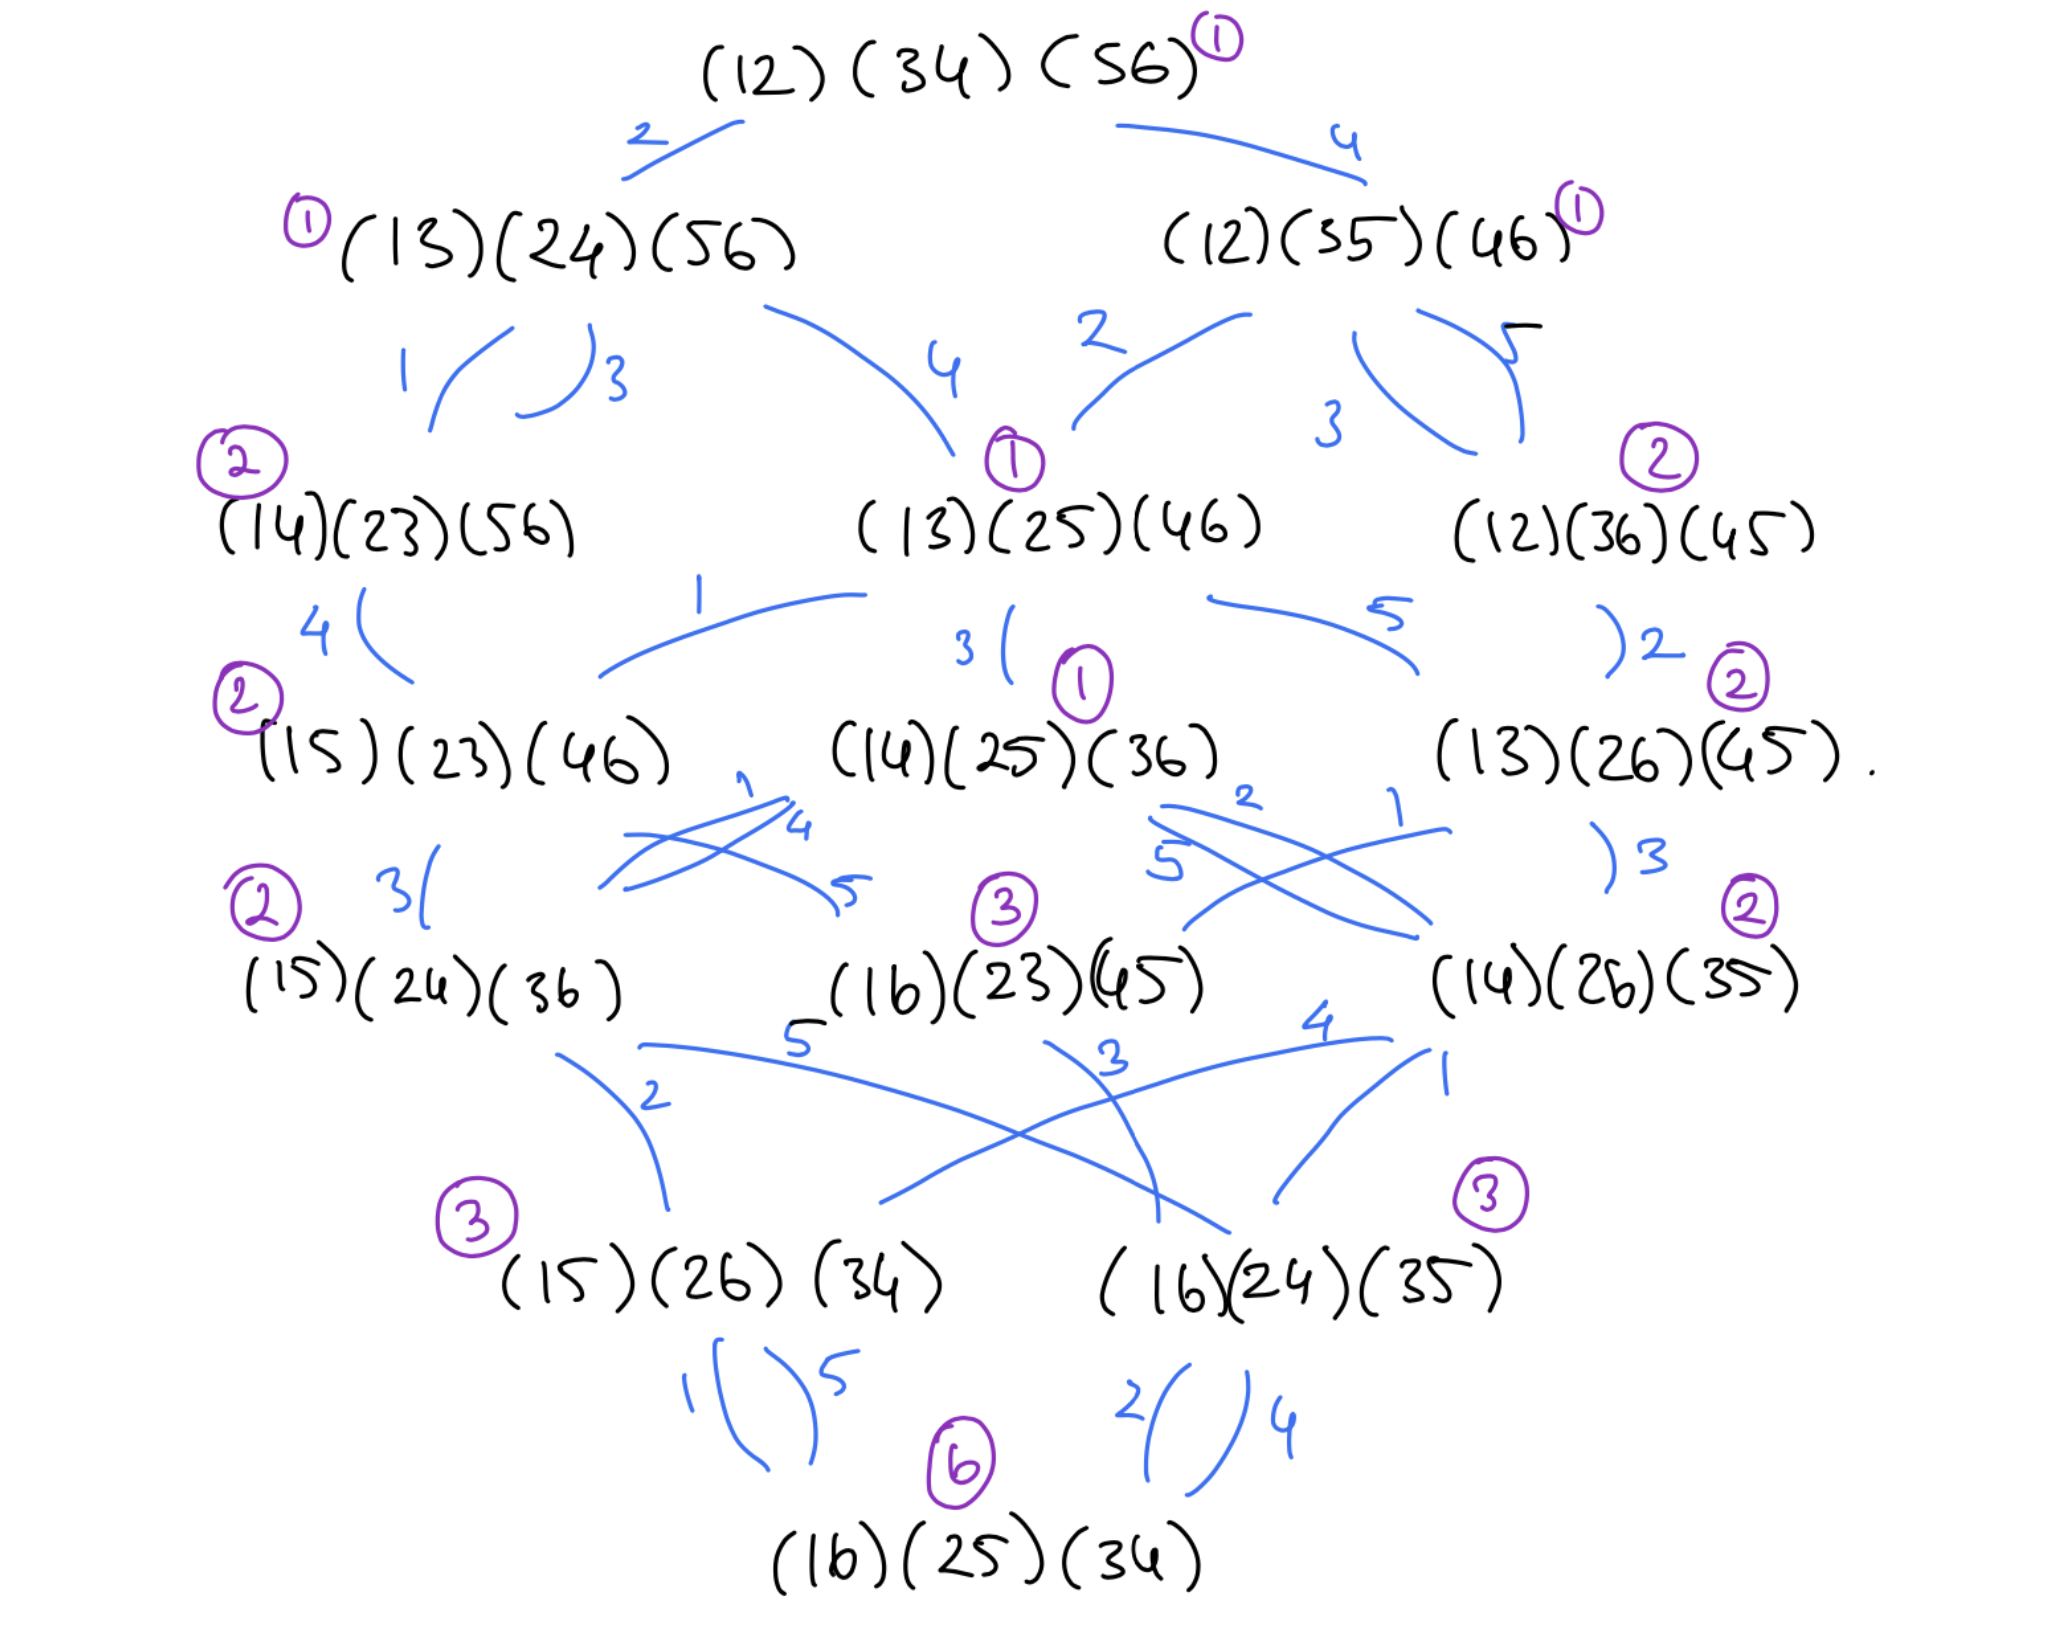 (12)(34)(56) 1
2 4
1 (13)(24)(56) (12)(35)(46) 1
1 3 4 2 3 5
2 1 2
(14)(23)(56) (13)(25)(46) (12)(36)(45)
4 1 3 5 2
2 1 2
(15)(23)(46) (14)(25)(36) (13)(26)(45).
1 4 2 1
3 5 5 3
2 3 2
(15)(24)(36) (16)(23)(45) (14)(26)(35)
5 4
2 3 1
3 3
(15)(26)(34) (16)(24)(35)
1 5 2 4
6
(16)(25)(34)